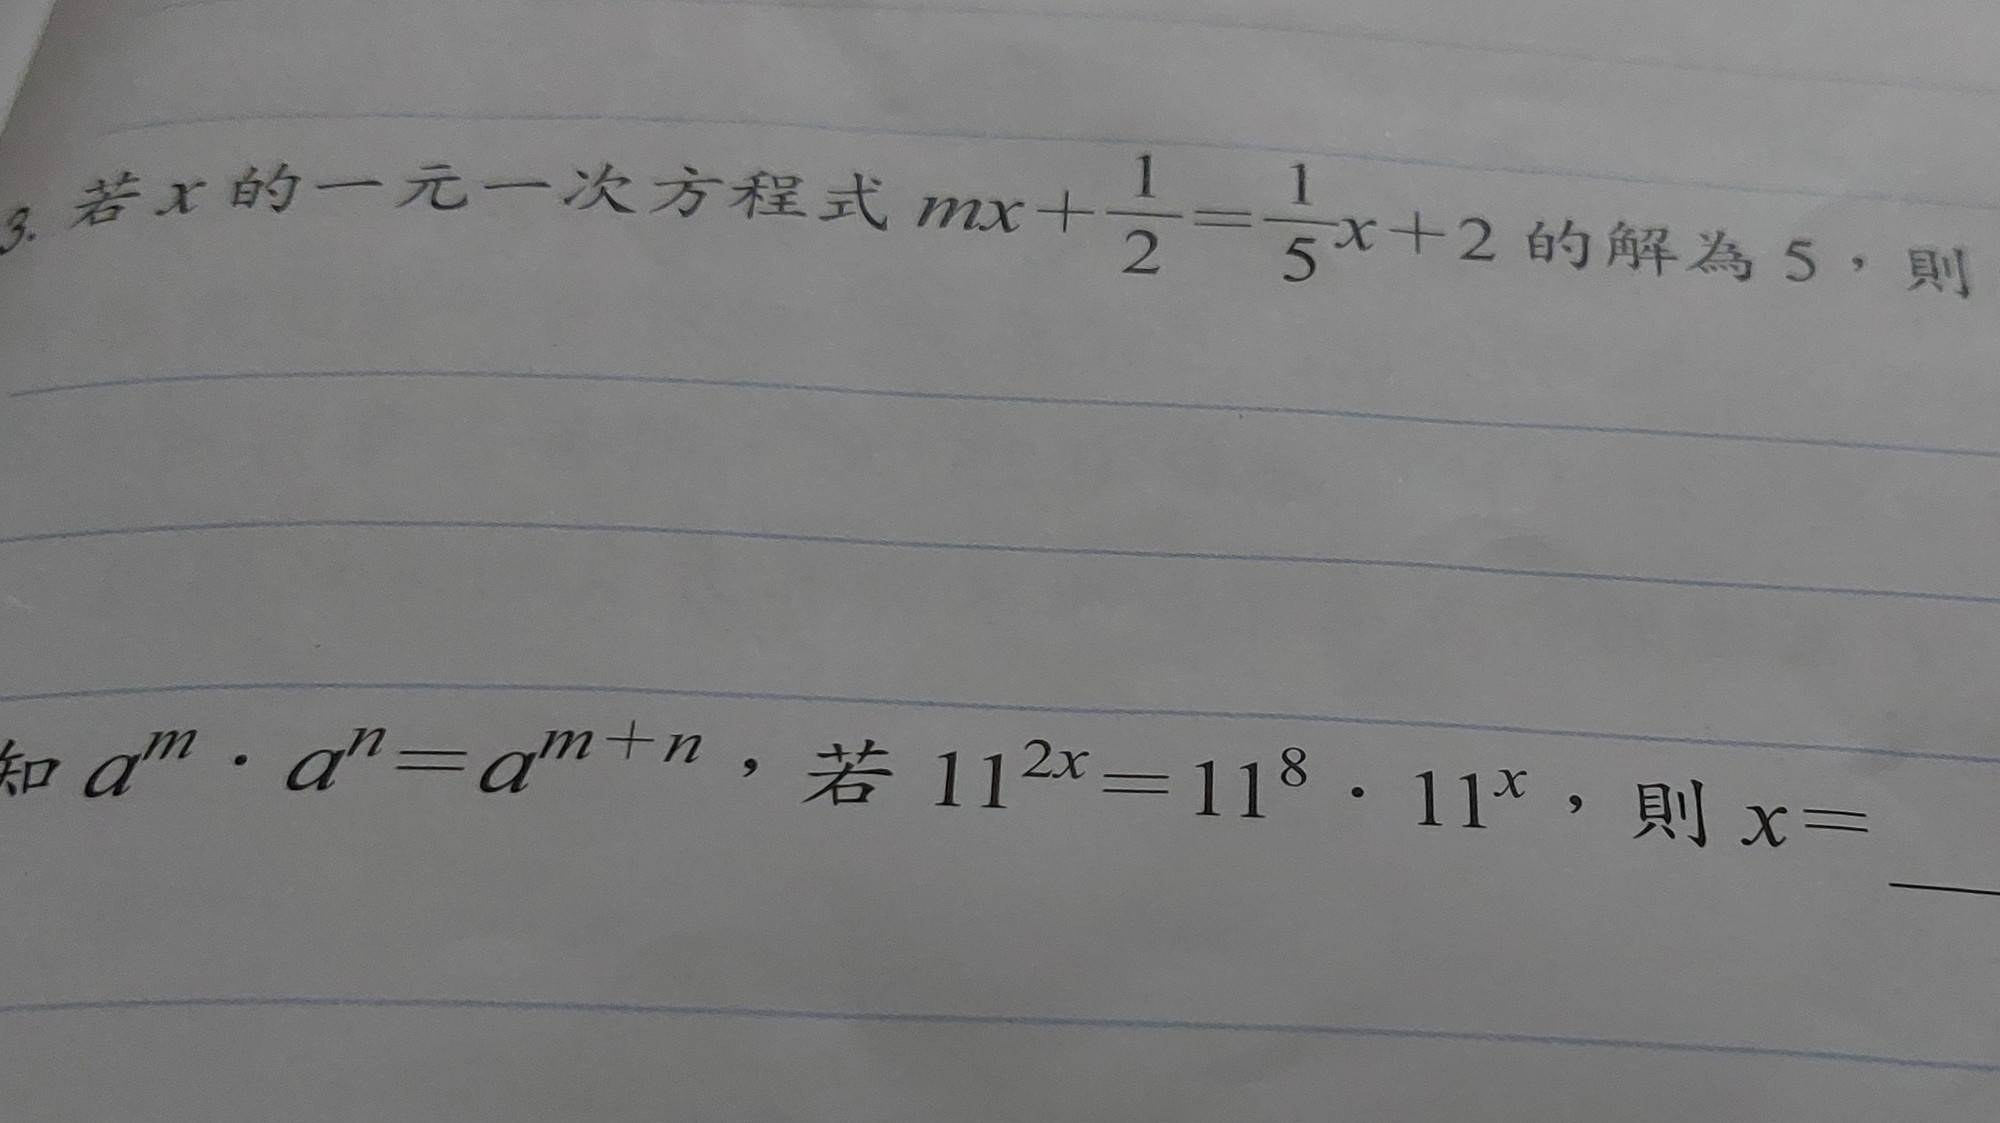 3. 若 x 的一元一次方程式 mx + 1/2 = 1/5 x + 2 的解為 5，則
知 a^m · a^n = a^{m+n}，若 11^{2x} = 11^8 · 11^x，則 x = ___